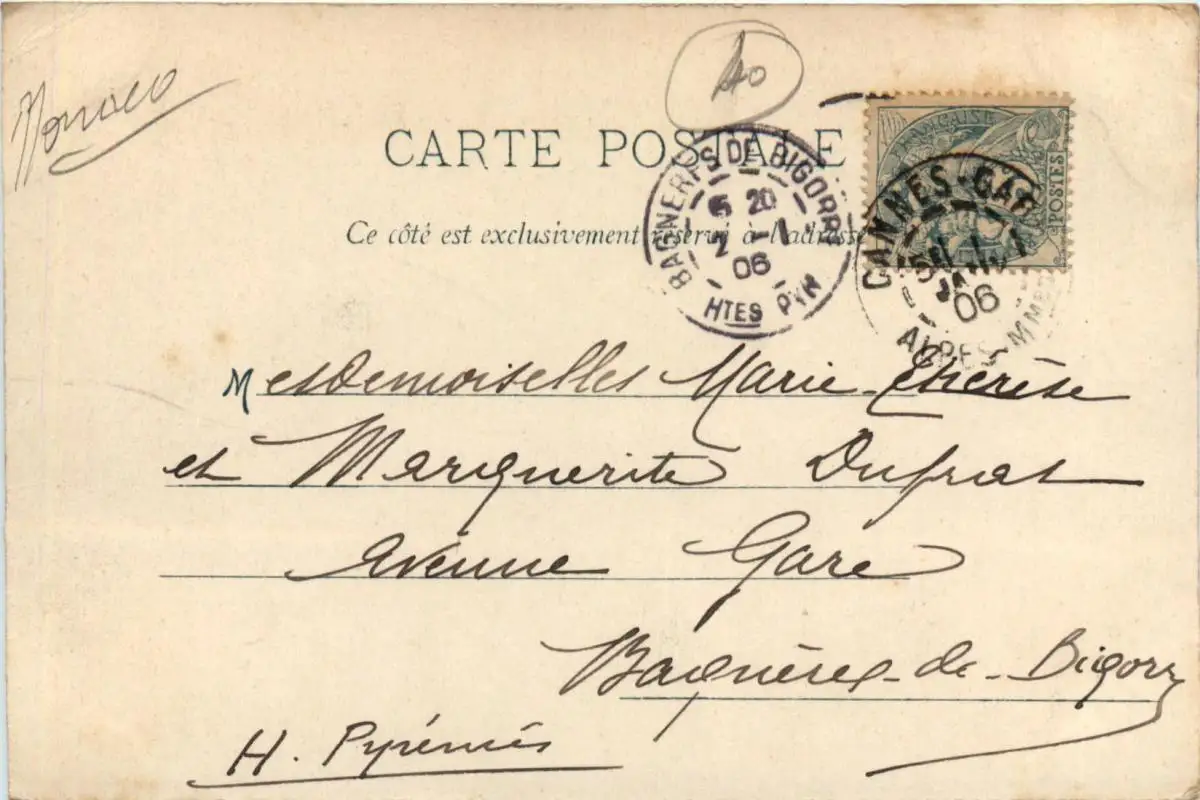 Monaco
40
CARTE POSTALE
Ce côté est exclusivement réservé à l'adresse
BAGNERES DE BIGORRE
5 20
2 - 1
06
HTES PYR
FRANÇAISE
POSTES
CANNES-GARE
06
ALPES-MMES
Mesdemoiselles Marie-Thérèse
et Marguerite Dufrat
Avenue Gare
Bagnères-de-Bigorre
H. Pyrénées